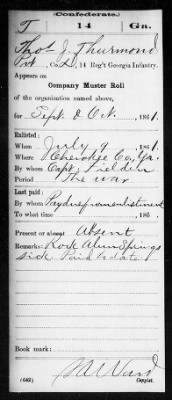 Confederate.
T 14 Ga.
Thos J. Thurmond
Pvt, Co. 14 Reg't Georgia Infantry.
Appears on
Company Muster Roll
of the organization named above,
for Sept & Oct, 1861.
Enlisted:
When July 9, 1861.
Where Cherokee Co, Ga.
By whom Capt. Fielder
Period The war
Last paid:
By whom Pay due from enlistment
To what time , 186 .
Present or absent Absent
Remarks: Rock Alum Springs
sick Paid to date
Book mark:
(642) Ward
Copyist.